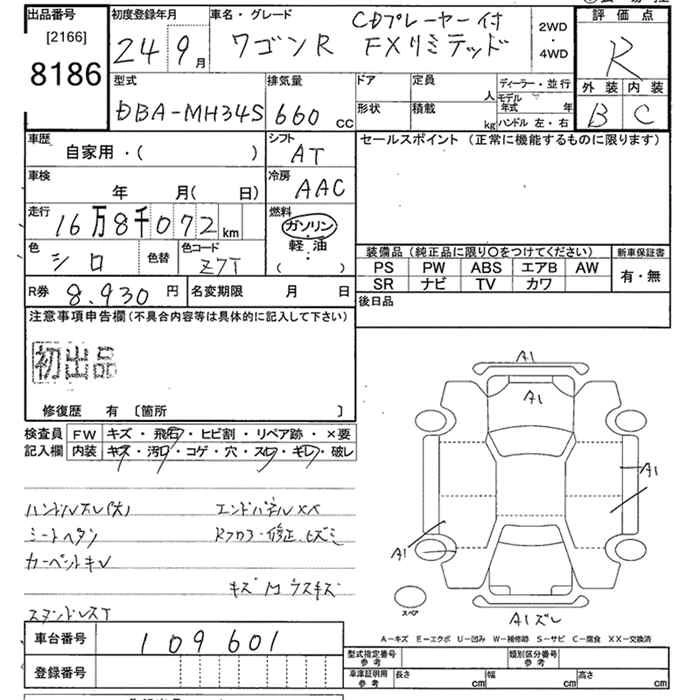 出品番号 初度登録年月 車名・グレード CDプレーヤー付 2WD 評価点
[2166] 24 9月 ワゴンR FXリミテッド ・ R
8186 4WD
型式 排気量 ドア 定員 ディーラー・並行 外装 内装
DBA-MH34S 660 cc 人 モデル年式 年 B C
形状 積載 kg ハンドル 左・右
車歴 シフト セールスポイント (正常に機能するものに限ります)
自家用・( ) AT
車検 冷房
年 月( 日) AAC
走行 燃料
16万8千072km ガソリン
色 色替 色コード 軽油
シロ Z7T ・ ( )
装備品(純正品に限り○をつけてください) 新車保証書
PS PW ABS エアB AW 有・無
SR ナビ TV カワ
R券 8,930円 名変期限 月 日 後日品
注意事項申告欄(不具合内容等は具体的に記入して下さい)
初出品
修復歴 有 〔箇所 〕
検査員 FW キズ・飛石・ヒビ割・リペア跡・×要
記入欄 内装 キズ・汚れ・コゲ・穴・スレ・ギレ・破レ
A1
A1
A1
A1
ハンドルスレ(大) エンドパネルXX
シートヘタリ Rフロア・修正、ヒズミ
カーペットキレ
キズ M ウスキズ
スペア
A1ズレ
A-キズ E-エクボ U-凹み W-補修跡 S-サビ C-腐食 XX-交換済
車台番号 109601
登録番号
型式指定番号 参考 類別区分番号 参考
車庫証明用 参考 長さ cm 幅 cm 高さ cm